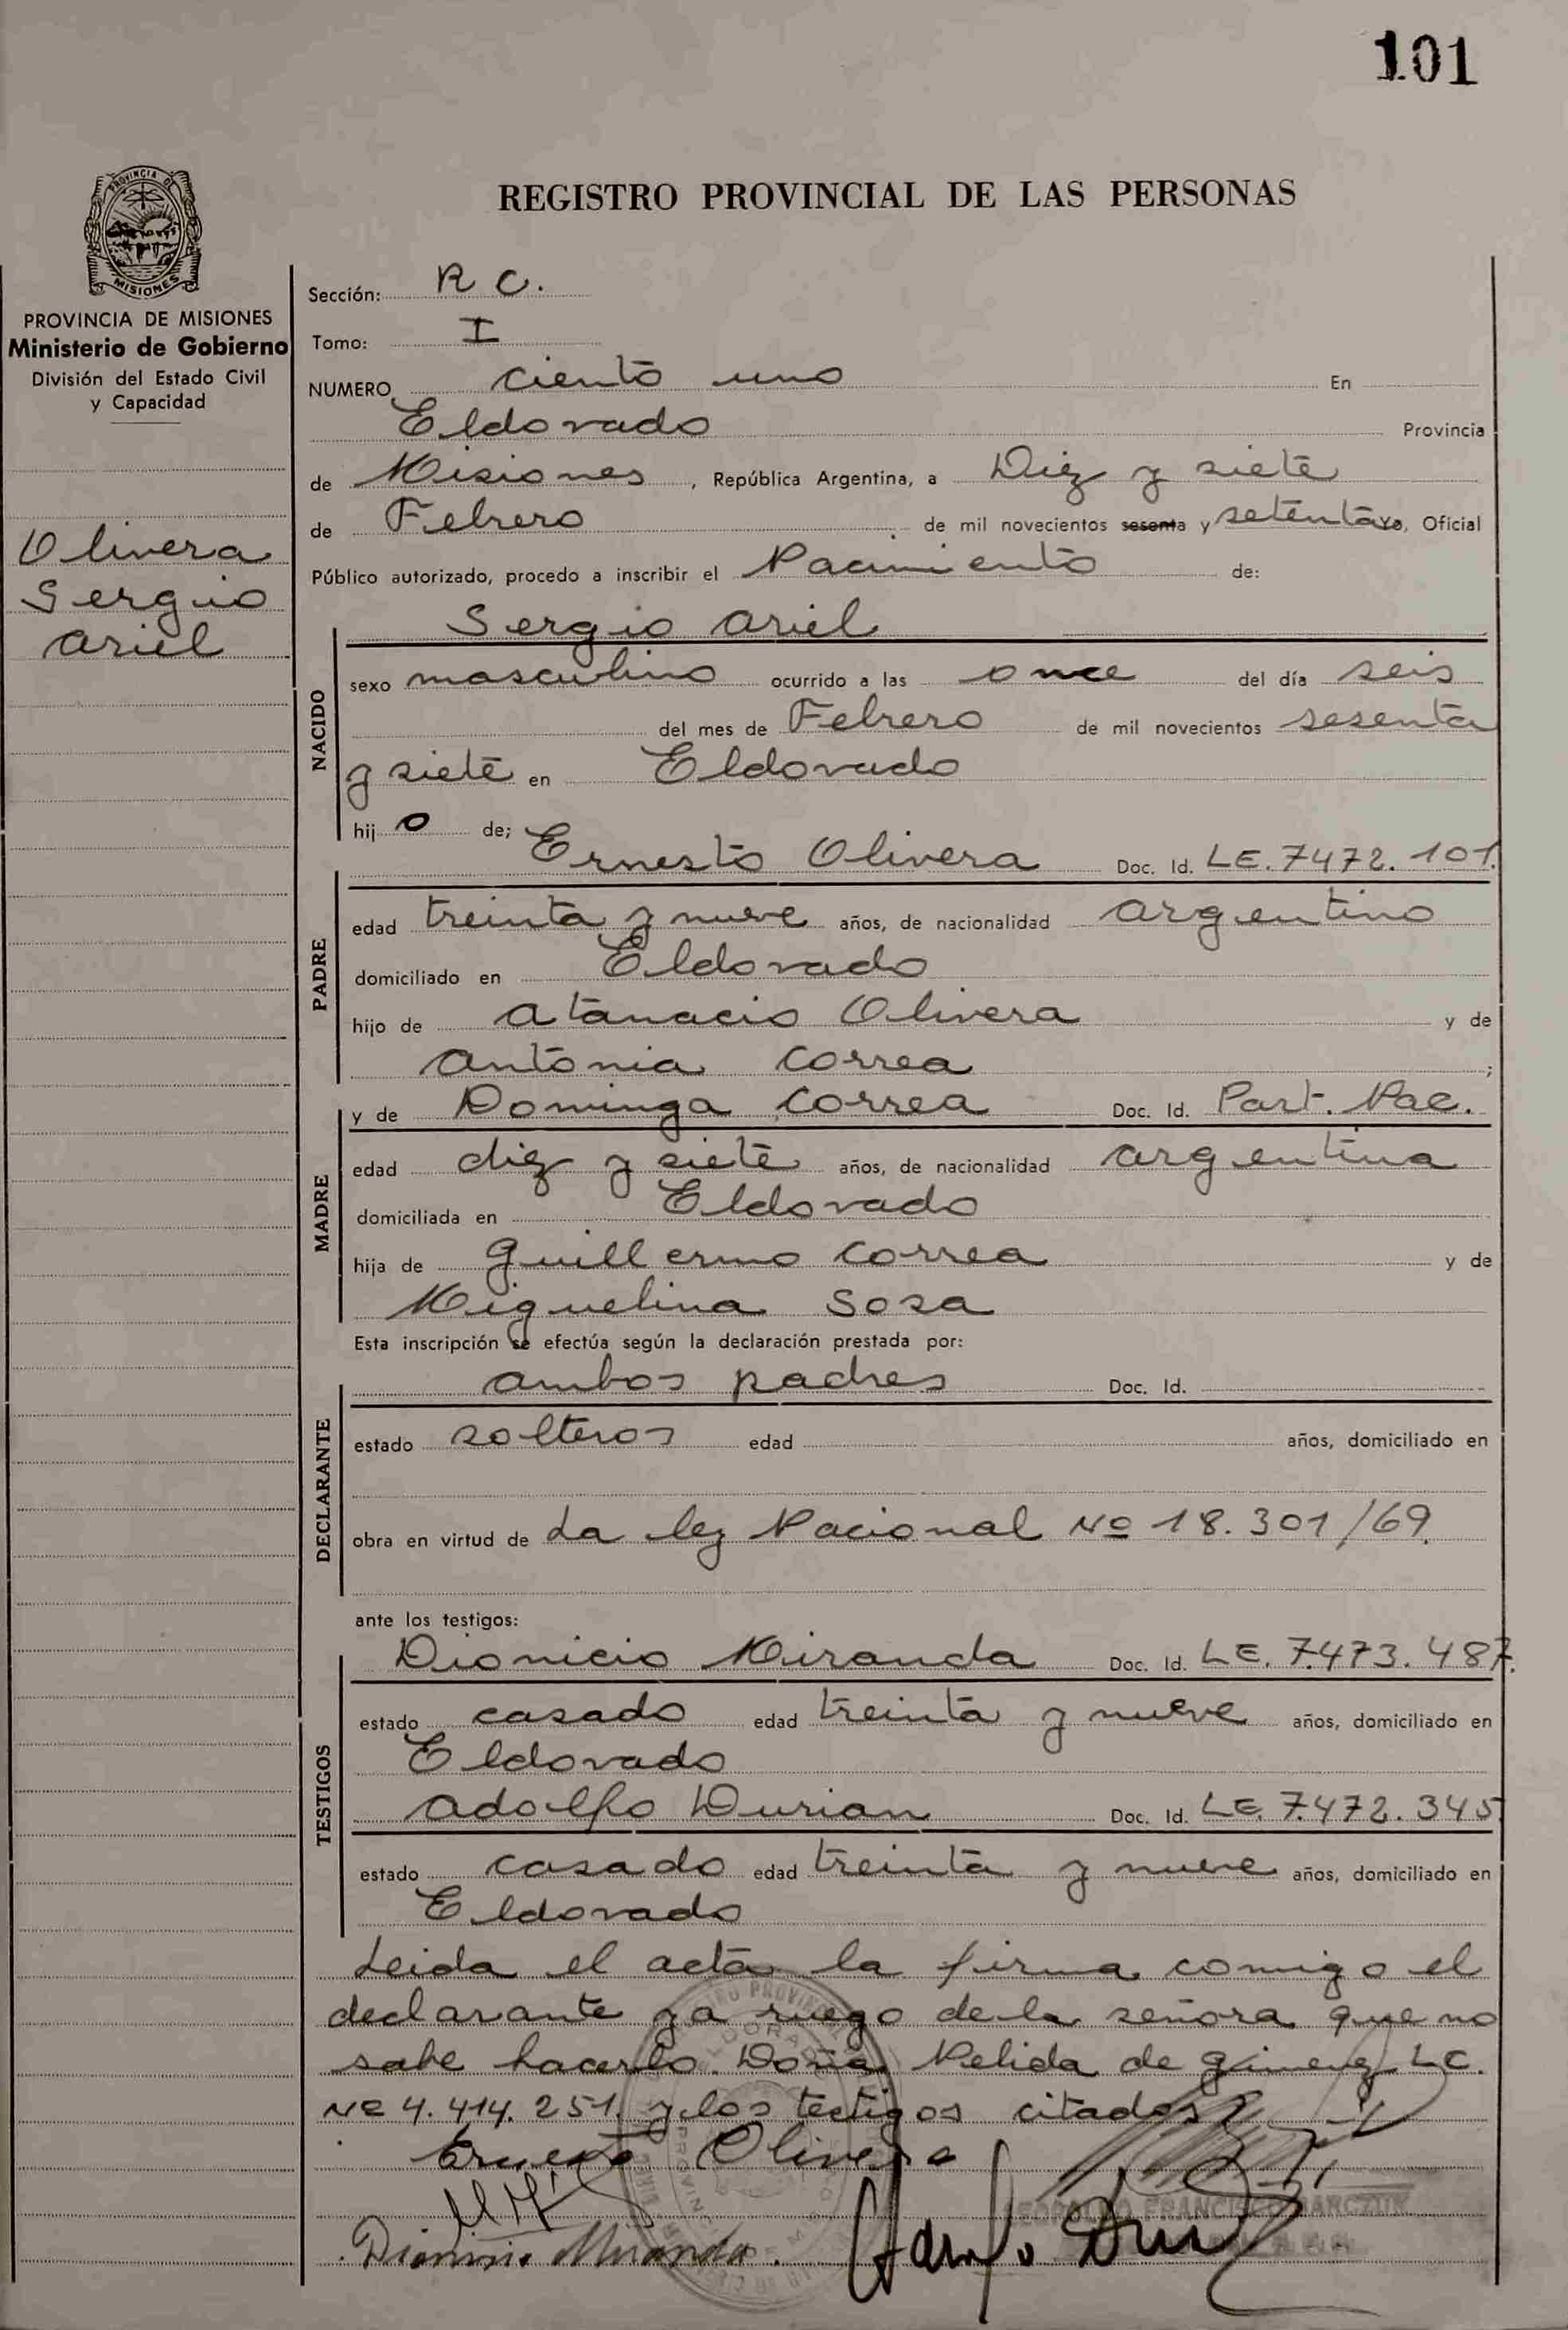 101
REGISTRO PROVINCIAL DE LAS PERSONAS
PROVINCIA DE MISIONES
PROVINCIA DE MISIONES
Ministerio de Gobierno
División del Estado Civil
y Capacidad
Olivera
Sergio
Ariel
Sección: R C.
Tomo: I
NUMERO ciento uno En
Eldorado Provincia
de Misiones, República Argentina, a Diez y siete
de Febrero de mil novecientos sesenta y setenta yo, Oficial
Público autorizado, procedo a inscribir el Nacimiento de:
Sergio Ariel
NACIDO
sexo masculino ocurrido a las once del día seis
del mes de Febrero de mil novecientos sesenta
y siete en Eldorado
hijo de; Ernesto Olivera Doc. Id. LE. 7472.101.
PADRE
edad treinta y nueve años, de nacionalidad argentino
domiciliado en Eldorado
hijo de Atanacio Olivera y de
Antonia Correa ;
y de Dominga Correa Doc. Id. Part. Nac.
MADRE
edad diez y siete años, de nacionalidad argentina
domiciliada en Eldorado
hija de Guillermo Correa y de
Miguelina Sosa
Esta inscripción se efectúa según la declaración prestada por:
ambos padres Doc. Id.
DECLARANTE
estado solteros edad años, domiciliado en
obra en virtud de La ley Nacional Nº 18.301/69.
ante los testigos:
Dionicio Miranda Doc. Id. LE. 7.473.487.
TESTIGOS
estado casado edad treinta y nueve años, domiciliado en
Eldorado
Adolfo Durian Doc. Id. LE. 7.472.345
estado casado edad treinta y nueve años, domiciliado en
Eldorado
Leida el acta la firma comigo el
declarante y a ruego de la señora que no
sabe hacerlo. Doña Nelida de Gimenez LC.
Nº 4.414.251. y los testigos citados
Ernesto Olivera
FRANCISCO
Dionisio Miranda.